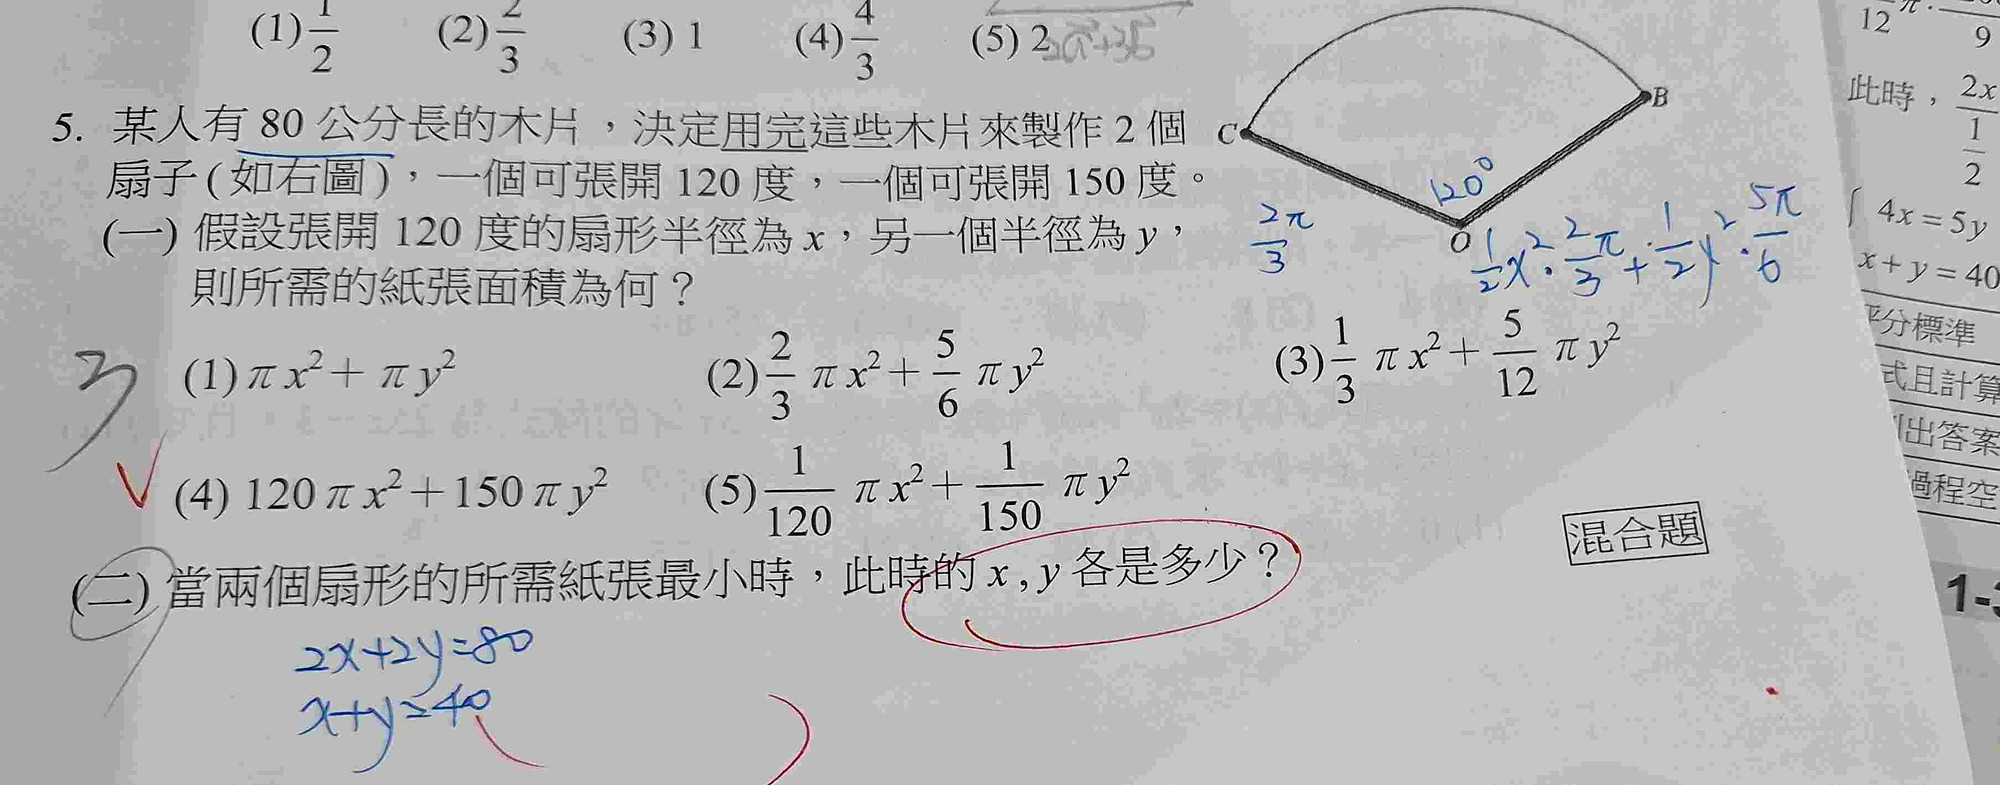 (1) 1/2 (2) 2/3 (3) 1 (4) 4/3 (5) 2
5. 某人有 80 公分長的木片，決定用完這些木片來製作 2 個
扇子(如右圖)，一個可張開 120 度，一個可張開 150 度。
(一) 假設張開 120 度的扇形半徑為 x，另一個半徑為 y，
則所需的紙張面積為何？
C
B
O
120°
2π/3
1/2 x²·2/3 π + 1/2 y²·5π/6
3
(1) π x² + π y² (2) 2/3 π x² + 5/6 π y² (3) 1/3 π x² + 5/12 π y²
(4) 120 π x² + 150 π y² (5) 1/120 π x² + 1/150 π y²
混合題
(二) 當兩個扇形的所需紙張最小時，此時的 x , y 各是多少？
2x+2y=80
x+y=40
12 π·
9
此時，2x
1/2
4x = 5y
x + y = 40
評分標準
式且計算
出答案
過程空
1-